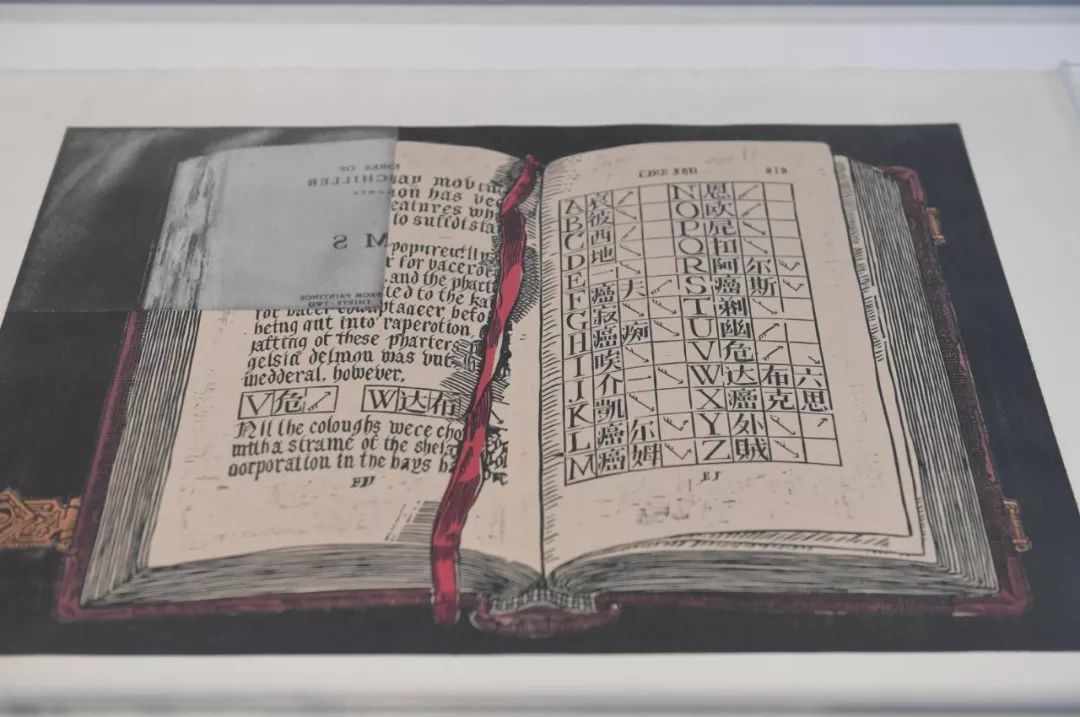 ORKS OF
CHILLER
M S
FROM PAINTINGS
THIRTY-TWO
ay movin
on has vee
eatures wh
to suffolsta
popurrectlly
r for vacerde
and the phact
ted to the ka
for befo
being qnt into raperotion,
jafting of these pharter
gelsin delmon was vut
medderal, however,
V危 W达布
All the coloughs wece cho
mitha strame of the shel
oorporation in the bays b
919
A 哀 N 恩
B 彼 O 欧
C 西 P 屁
D 地 Q
E 一 R 阿尔
F 癌夫 S 癌斯
G 寂 T 剃
H 癌痴 U 幽
I 唉 V 危
J 介 W 达布六
K 凯 X 癌克思
L 癌尔 Y 外
M 癌姆 Z 贼